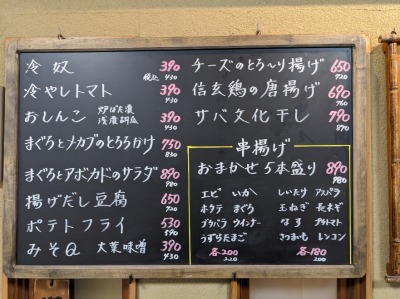 冷奴 390
税込 430
冷やしトマト 390
430
おしんこ 390
浅漬胡瓜 430
まぐろとメカブのとろろかけ 750
830
まぐろとアボカドのサラダ 890
980
揚げだし豆腐 650
720
ポテトフライ 530
590
みそQ 大葉味噌 390
430
チーズのとろ～り揚げ 650
720
信玄鶏の唐揚げ 690
760
サバ文化干し 790
870
串揚げ
おまかせ5本盛り 890
980
エビ いか
ホタテ まぐろ
ブタバラ ウインナー
うずらたまご
各200
220
しいたけ アスパラ
玉ねぎ 長ネギ
なす プチトマト
さつまいも レンコン
各180
200